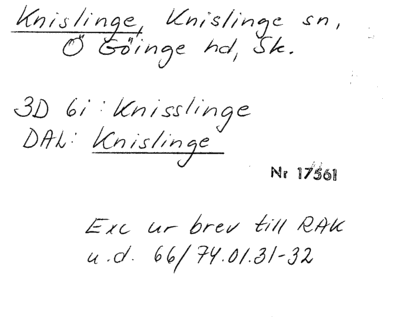 Knislinge, Knislinge sn,
Ö Göinge hd, Sk.
3D 6i: Knisslinge
DAL: Knislinge
Nr 17561
Exc ur brev till RAK
u.d. 66/74.01.31-32